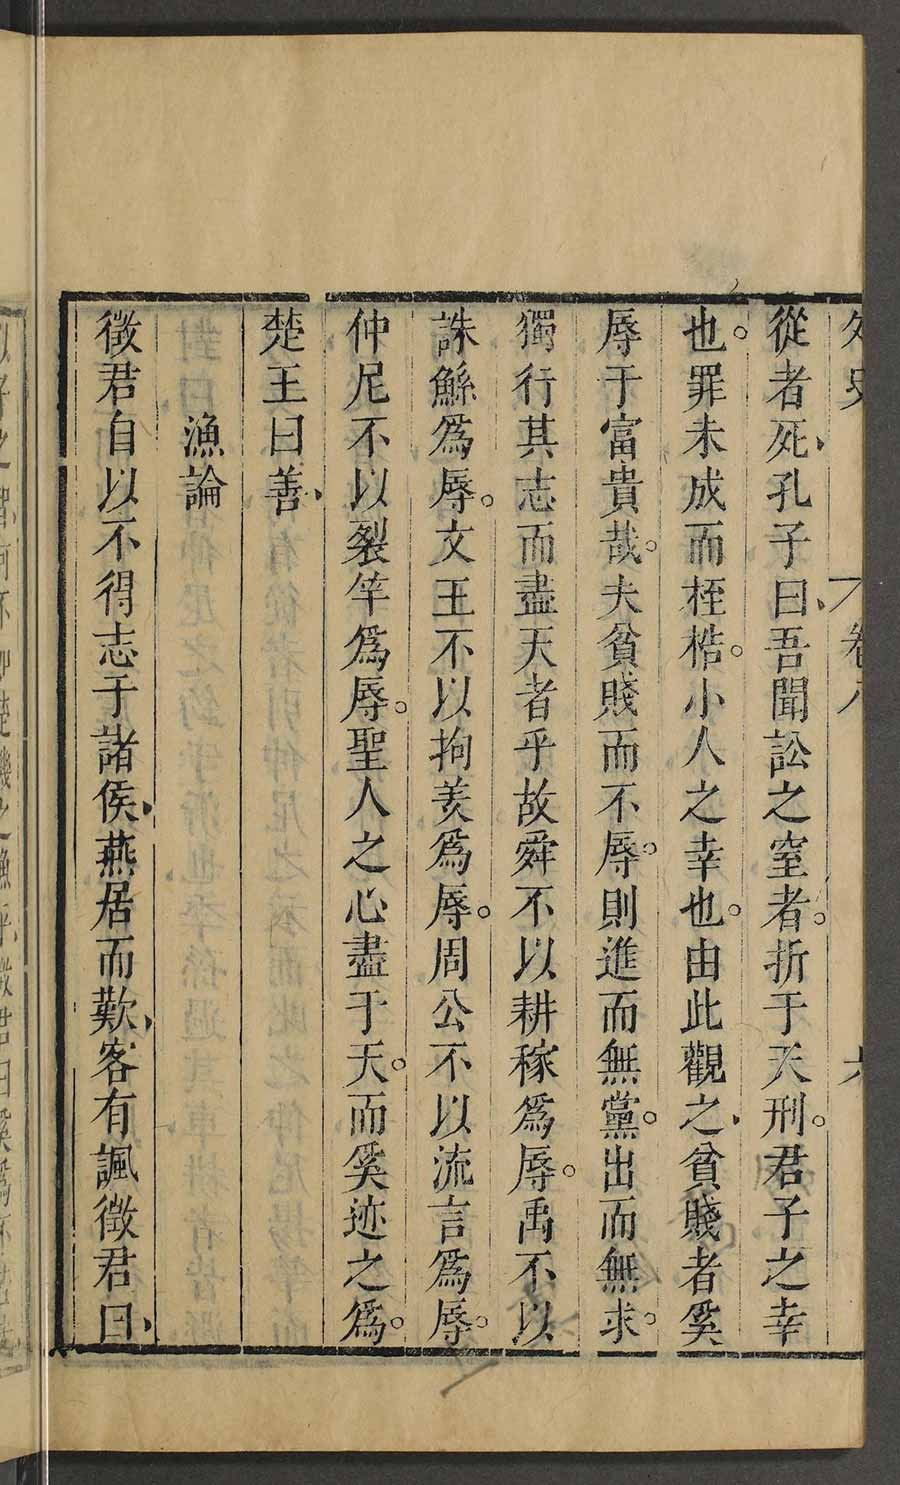 卷八
從者死、孔子曰、吾聞訟之窒者。折于天刑。君子之幸
也。罪未成而桎梏。小人之幸也。由此觀之、貧賤者奚
辱于富貴哉。夫貧賤而不辱。則進而無黨。出而無求。
獨行其志而盡天者乎故舜不以耕稼爲辱。禹不以
誅鯀爲辱。文王不以拘羑爲辱。周公不以流言爲辱。
仲尼不以裂竿爲辱。聖人之心盡于天。而奚迹之爲。
楚王曰善、
漁論
徵君自以不得志于諸侯、燕居而歎、客有諷徵君曰、